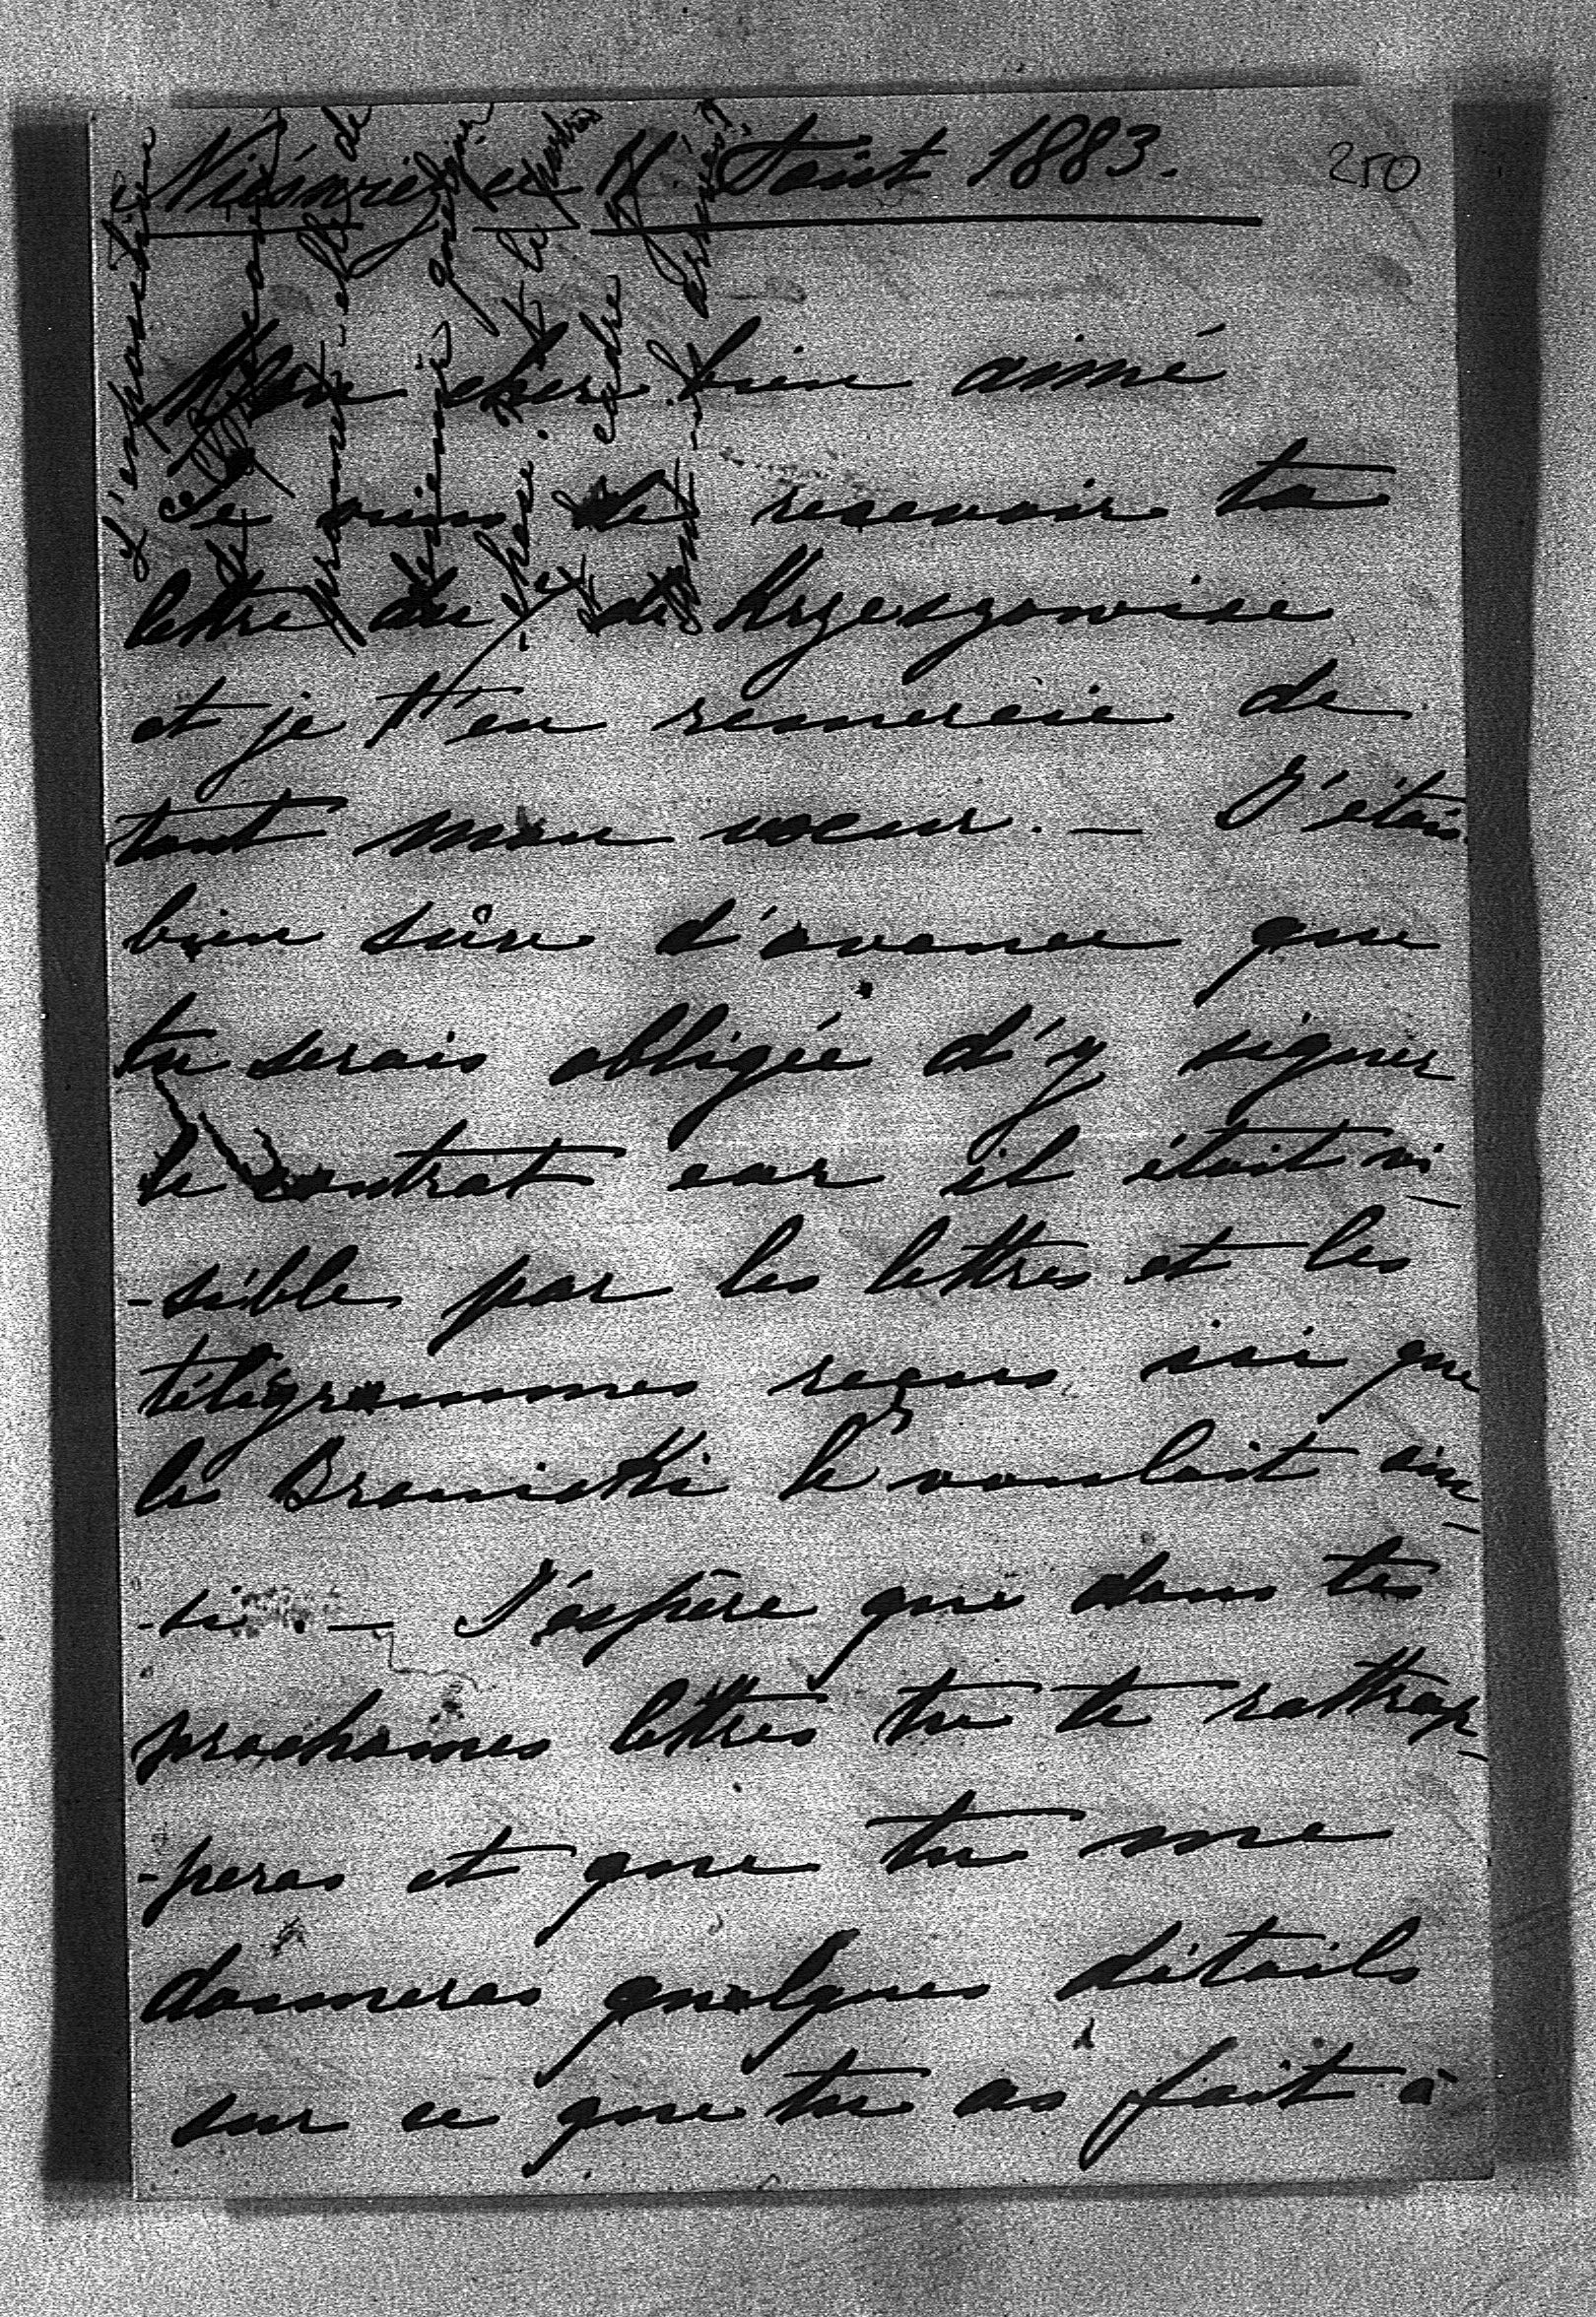 250
Nieświez le 11. Août 1883.
Mon cher bien aimé
Je viens de recevoir ta
lettre du de Krzeszowice
et je t'en remercie de
tout mon coeur. — J'étais
bien sûre d'avance que
tu serais obligée d'y signer
le contrat car il était vi-
-sible par les lettres et les
télégrammes reçus ici que
les Branicki le voulait ain-
-si — J'éspère que dans tes
prochaines lettres tu te rattrap-
-peras et que tu me
donneras quelques détails
sur ce que tu as fait à